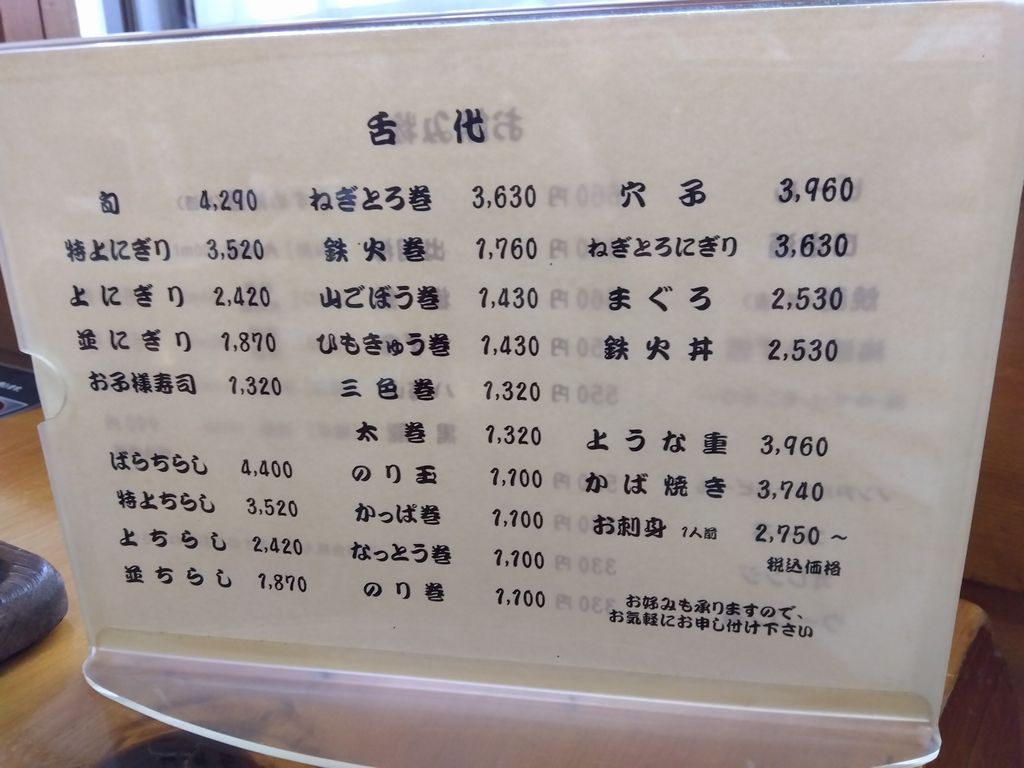 舌代
旬 4,290
特上にぎり 3,520
上にぎり 2,420
並にぎり 1,870
お子様寿司 1,320
ばらちらし 4,400
特上ちらし 3,520
上ちらし 2,420
並ちらし 1,870
ねぎとろ巻 3,630
鉄火巻 1,760
山ごぼう巻 1,430
ひもきゅう巻 1,430
三色巻 1,320
太巻 1,320
のり玉 1,100
かっぱ巻 1,100
なっとう巻 1,100
のり巻 1,100
穴子 3,960
ねぎとろにぎり 3,630
まぐろ 2,530
鉄火丼 2,530
とうな重 3,960
かば焼き 3,740
お刺身 1人前 2,750～
税込価格
お好みも承りますので、
お気軽にお申し付け下さい